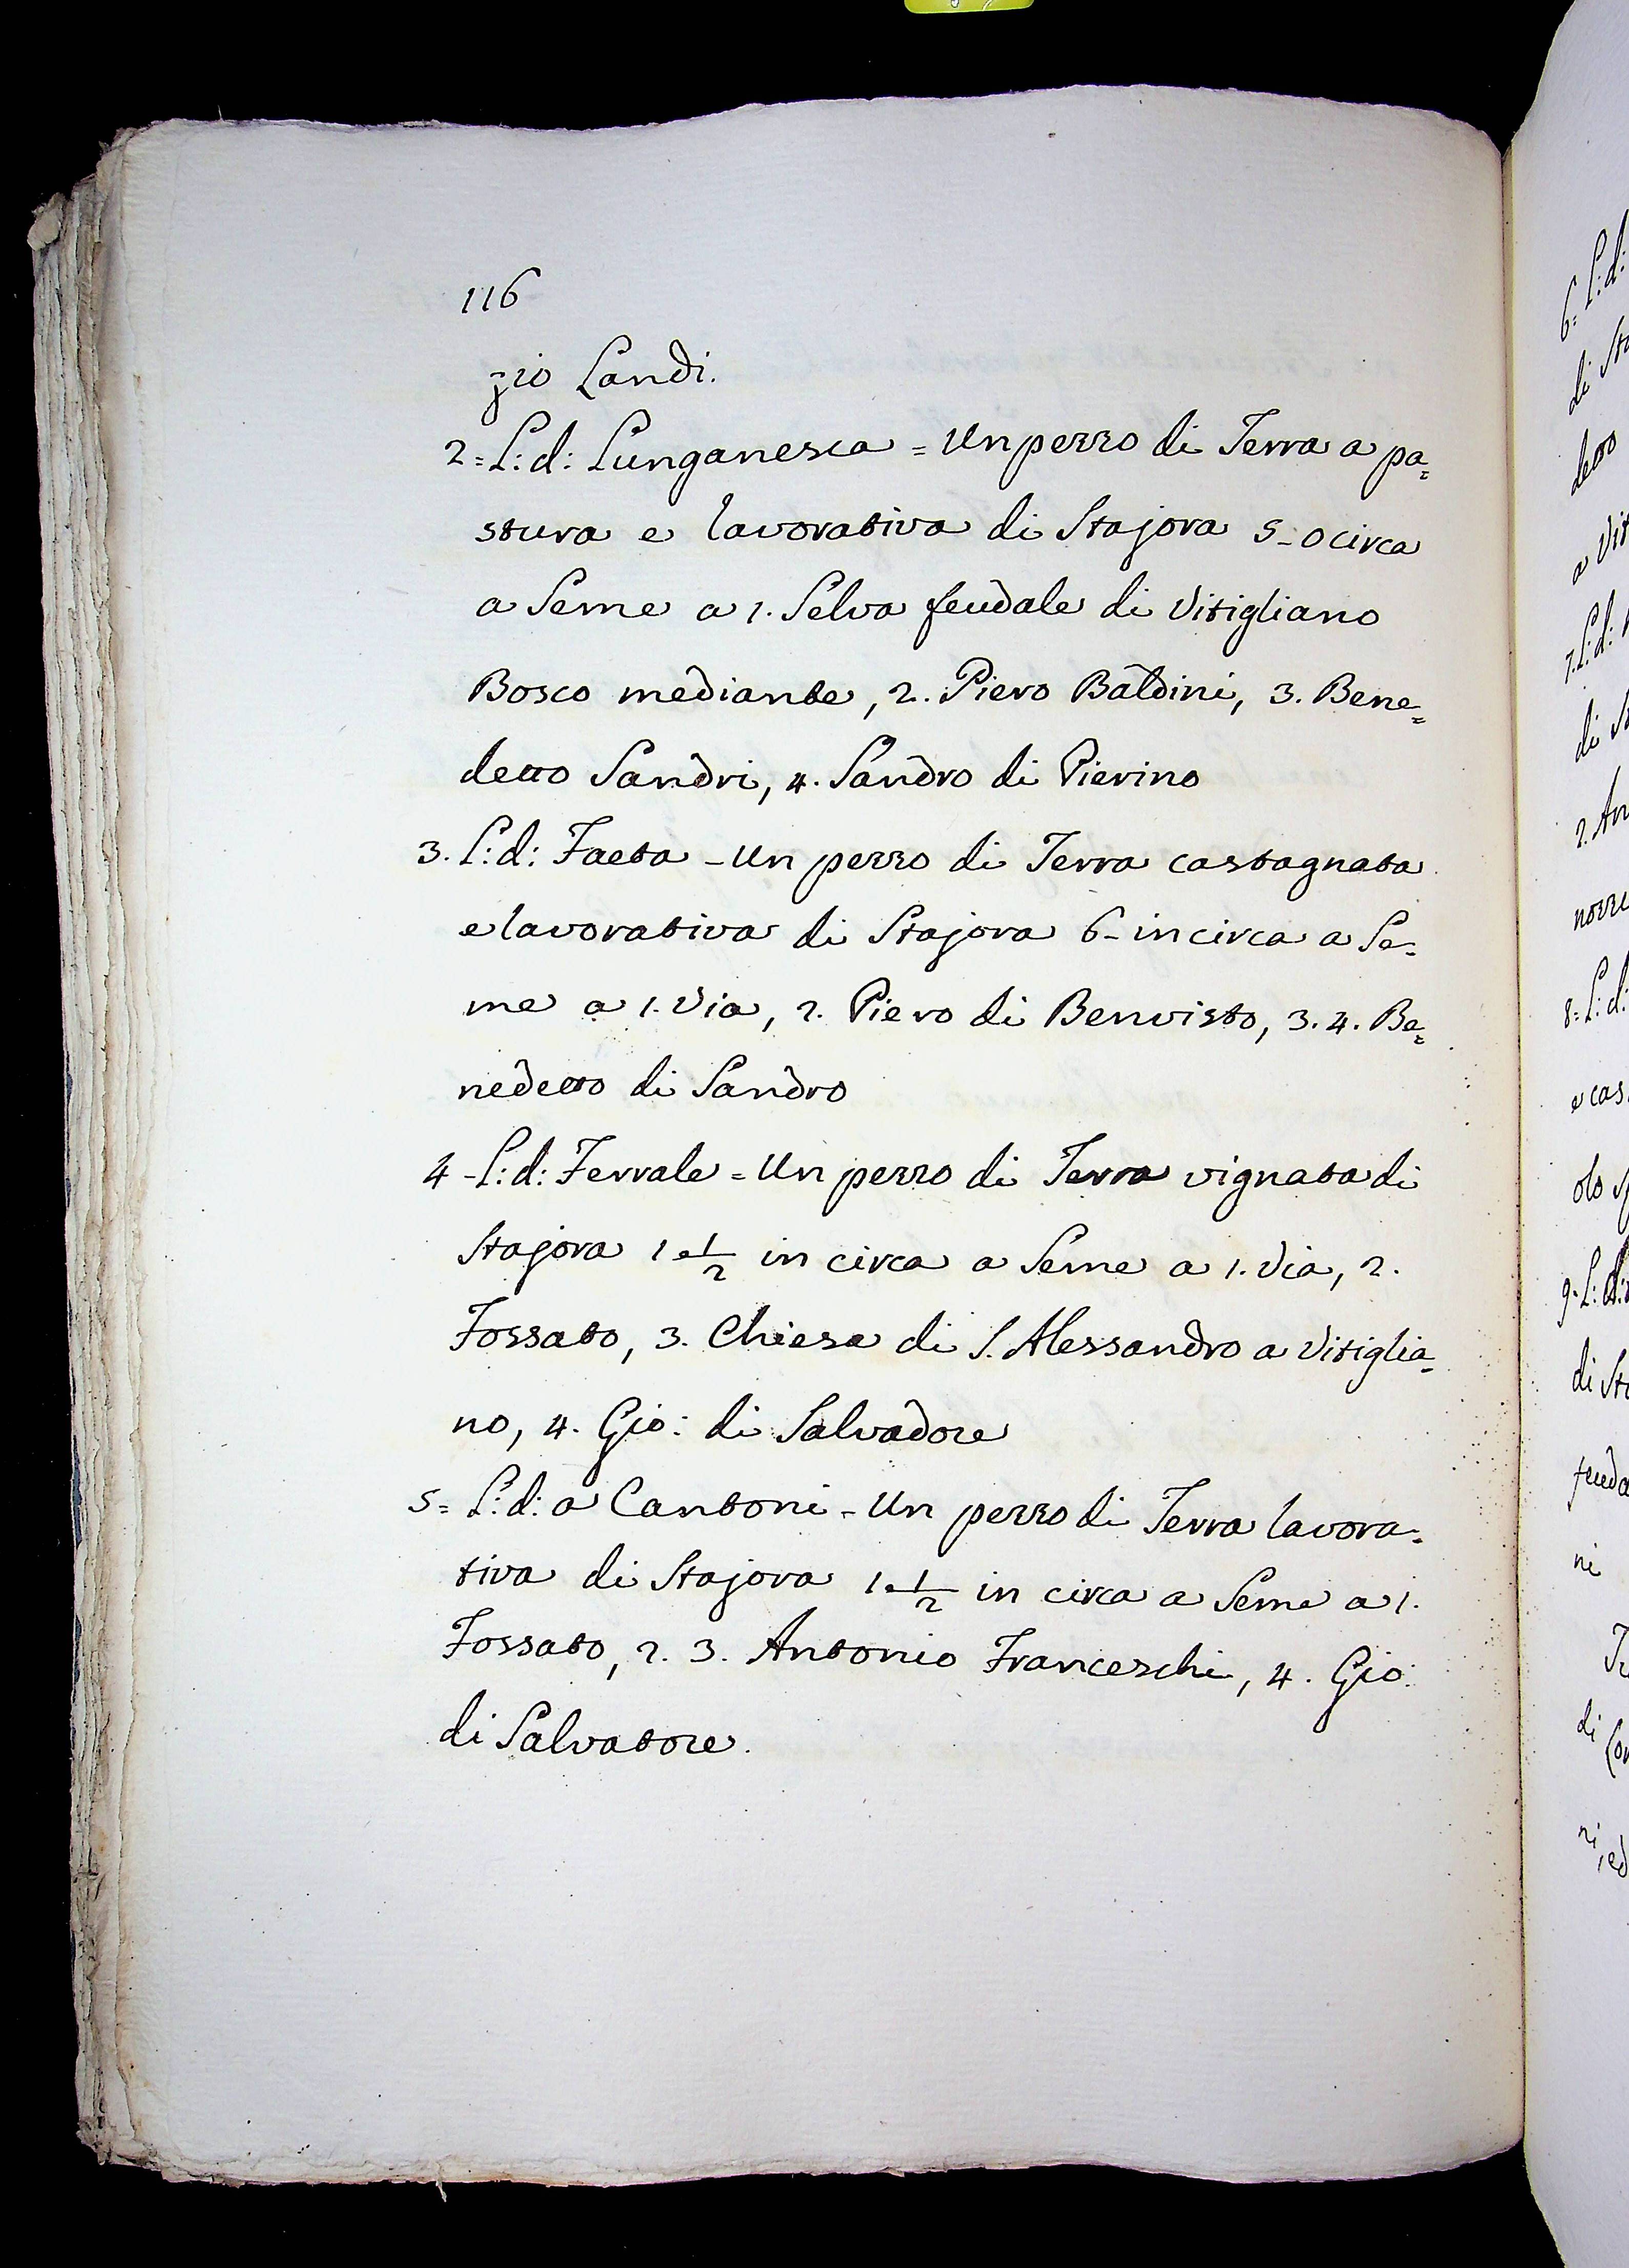 116
zio Landi.
2=L: d: Lunganesca = Un pezzo di Terra a pa=
stura e lavorativa di Stajora 5-0 circa
a Seme a 1. Selva feudale di Vitigliano
Bosco mediante, 2. Piero Baldini, 3. Bene=
detto Sandri, 4. Sandro di Pierino
3. L: d: Faeta - Un pezzo di Terra castagnata
e lavorativa di Stajora 6- in circa a Se=
me a 1. Via, 2. Piero di Benvisto, 3. 4. Be=
nedetto di Sandro
4 - L: d: Ferrale = Un pezzo di Terra vignata di
Stajora 1 e 1/2 in circa a Seme a 1. Via, 2.
Fossato, 3. Chiesa di S. Alessandro a Vitiglia=
no, 4. Gio: di Salvadore
5= L: d: a Cantoni - Un pezzo di Terra lavora=
tiva di Stajora 1 e 1/2 in circa a Seme a 1.
Fossato, 2. 3. Antonio Franceschi, 4. Gio:
di Salvatore.
6= L: d:
di Sta
detto
a Vit
7. L: d:
di S
2. An
nozze
8= L: d:
e cas
9- L: d:
di Sta
feuda
ni
di Con